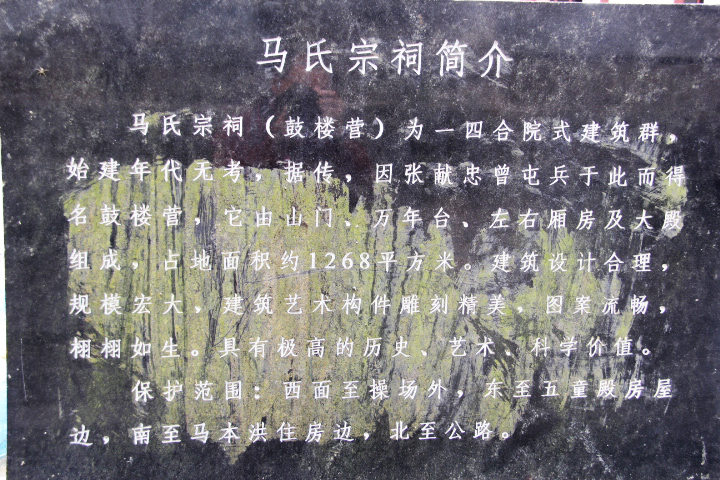 马氏宗祠简介
马氏宗祠（鼓楼营）为一四合院式建筑群，
始建年代无考，据传，因张献忠曾屯兵于此而得
名鼓楼营，它由山门、万年台、左右厢房及大殿
组成，占地面积约1268平方米。建筑设计合理，
规模宏大，建筑艺术构件雕刻精美，图案流畅，
栩栩如生。具有极高的历史、艺术、科学价值。
保护范围：西面至操场外，东至五童殿房屋
边，南至马本洪住房边，北至公路。